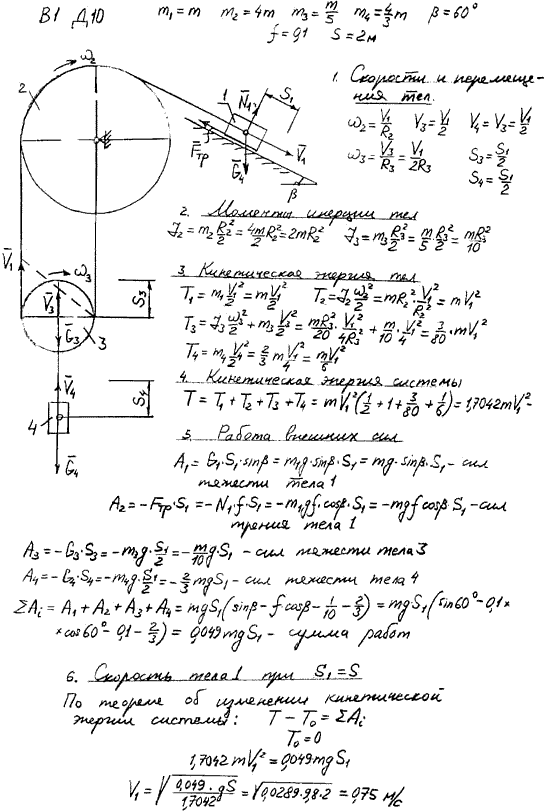 В1 Д10 m₁ = m m₂ = 4m m₃ = m/5 m₄ = 4/3 m β = 60°
f = 0,1 S = 2м
ω₂
2
1 N̄₁ S₁
F̄тр Ḡ₁ V̄₁
β
1. Скорости и перемеще-
ния тел.
ω₂ = V₁/R₂ V₃ = V₁/2 V₄ = V₃ = V₁/2
ω₃ = V₃/R₃ = V₁/2R₃ S₃ = S₁/2
S₄ = S₁/2
2. Моменты инерции тел
J₂ = m₂ R₂²/2 = 4m/2 R₂² = 2mR₂² J₃ = m₃ R₃²/2 = m/5 R₃²/2 = mR₃²/10
V̄₁ ω₃
V̄₃ S₃
Ḡ₃ 3
V̄₄ S₄
4
Ḡ₄
3. Кинетическая энергия тел
T₁ = m₁ V₁²/2 = m V₁²/2 T₂ = J₂ ω₂²/2 = mR₂² · V₁²/R₂² = mV₁²
T₃ = J₃ ω₃²/2 + m₃ V₃²/2 = mR₃²/20 · V₁²/4R₃² + m/10 · V₁²/4 = 3/80 · mV₁²
T₄ = m₄ V₄²/2 = 2/3 m V₁²/4 = mV₁²/6
4. Кинетическая энергия системы
T = T₁ + T₂ + T₃ + T₄ = mV₁²(1/2 + 1 + 3/80 + 1/6) = 1,7042mV₁² –
5. Работа внешних сил
A₁ = G₁·S₁·sinβ = m₁g·sinβ·S₁ = mg·sinβ·S₁ – сил
тяжести тела 1
A₂ = –Fтр·S₁ = –N₁·f·S₁ = –m₁gf·cosβ·S₁ = –mgf cosβ·S₁ – сил
трения тела 1
A₃ = –G₃·S₃ = –m₃g·S₁/2 = –m/10 gS₁ – сил тяжести тела 3
A₄ = –G₄·S₄ = –m₄g·S₁/2 = –2/3 mgS₁ – сил тяжести тела 4
ΣAᵢ = A₁ + A₂ + A₃ + A₄ = mgS₁(sinβ – f cosβ – 1/10 – 2/3) = mgS₁(sin60° – 0,1×
×cos60° – 0,1 – 2/3) = 0,049mgS₁ – сумма работ
6. Скорость тела 1 при S₁ = S
По теореме об изменении кинетической
энергии системы: T – T₀ = ΣAᵢ
T₀ = 0
1,7042 mV₁² = 0,049mgS₁
V₁ = √(0,049·gS/1,7042) = √(0,0289·9,8·2) = 0,75 м/с